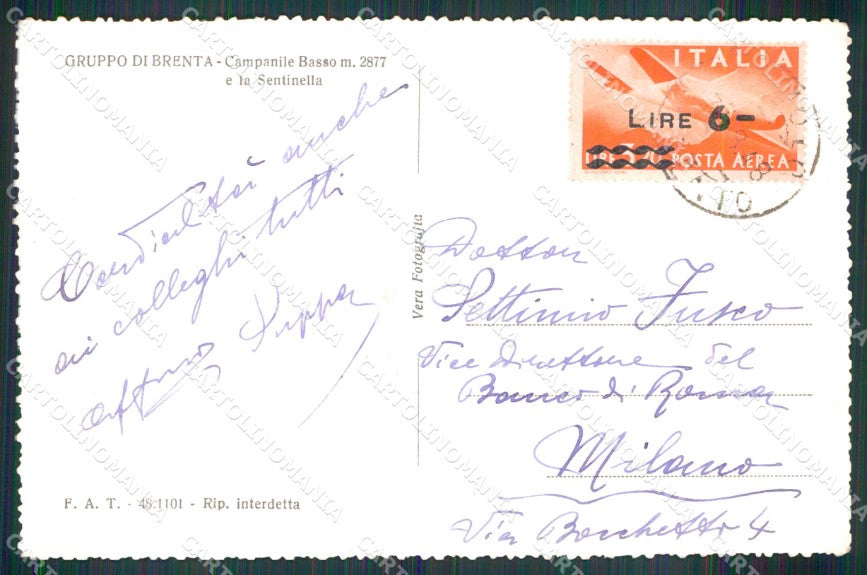 GRUPPO DI BRENTA - Campanile Basso m. 2877
e la Sentinella
Cordialità anche
ai colleghi tutti
F. A. T. - 48.1101 - Rip. interdetta
Vera Fotografia
ITALIA
LIRE 6-
LIRE 3,20 POSTA AEREA
Dottor
Settimio Fusco
Vice Direttore del
Banco di Roma
Milano
Via Bocchetto 4
CARTOLINOMANIA